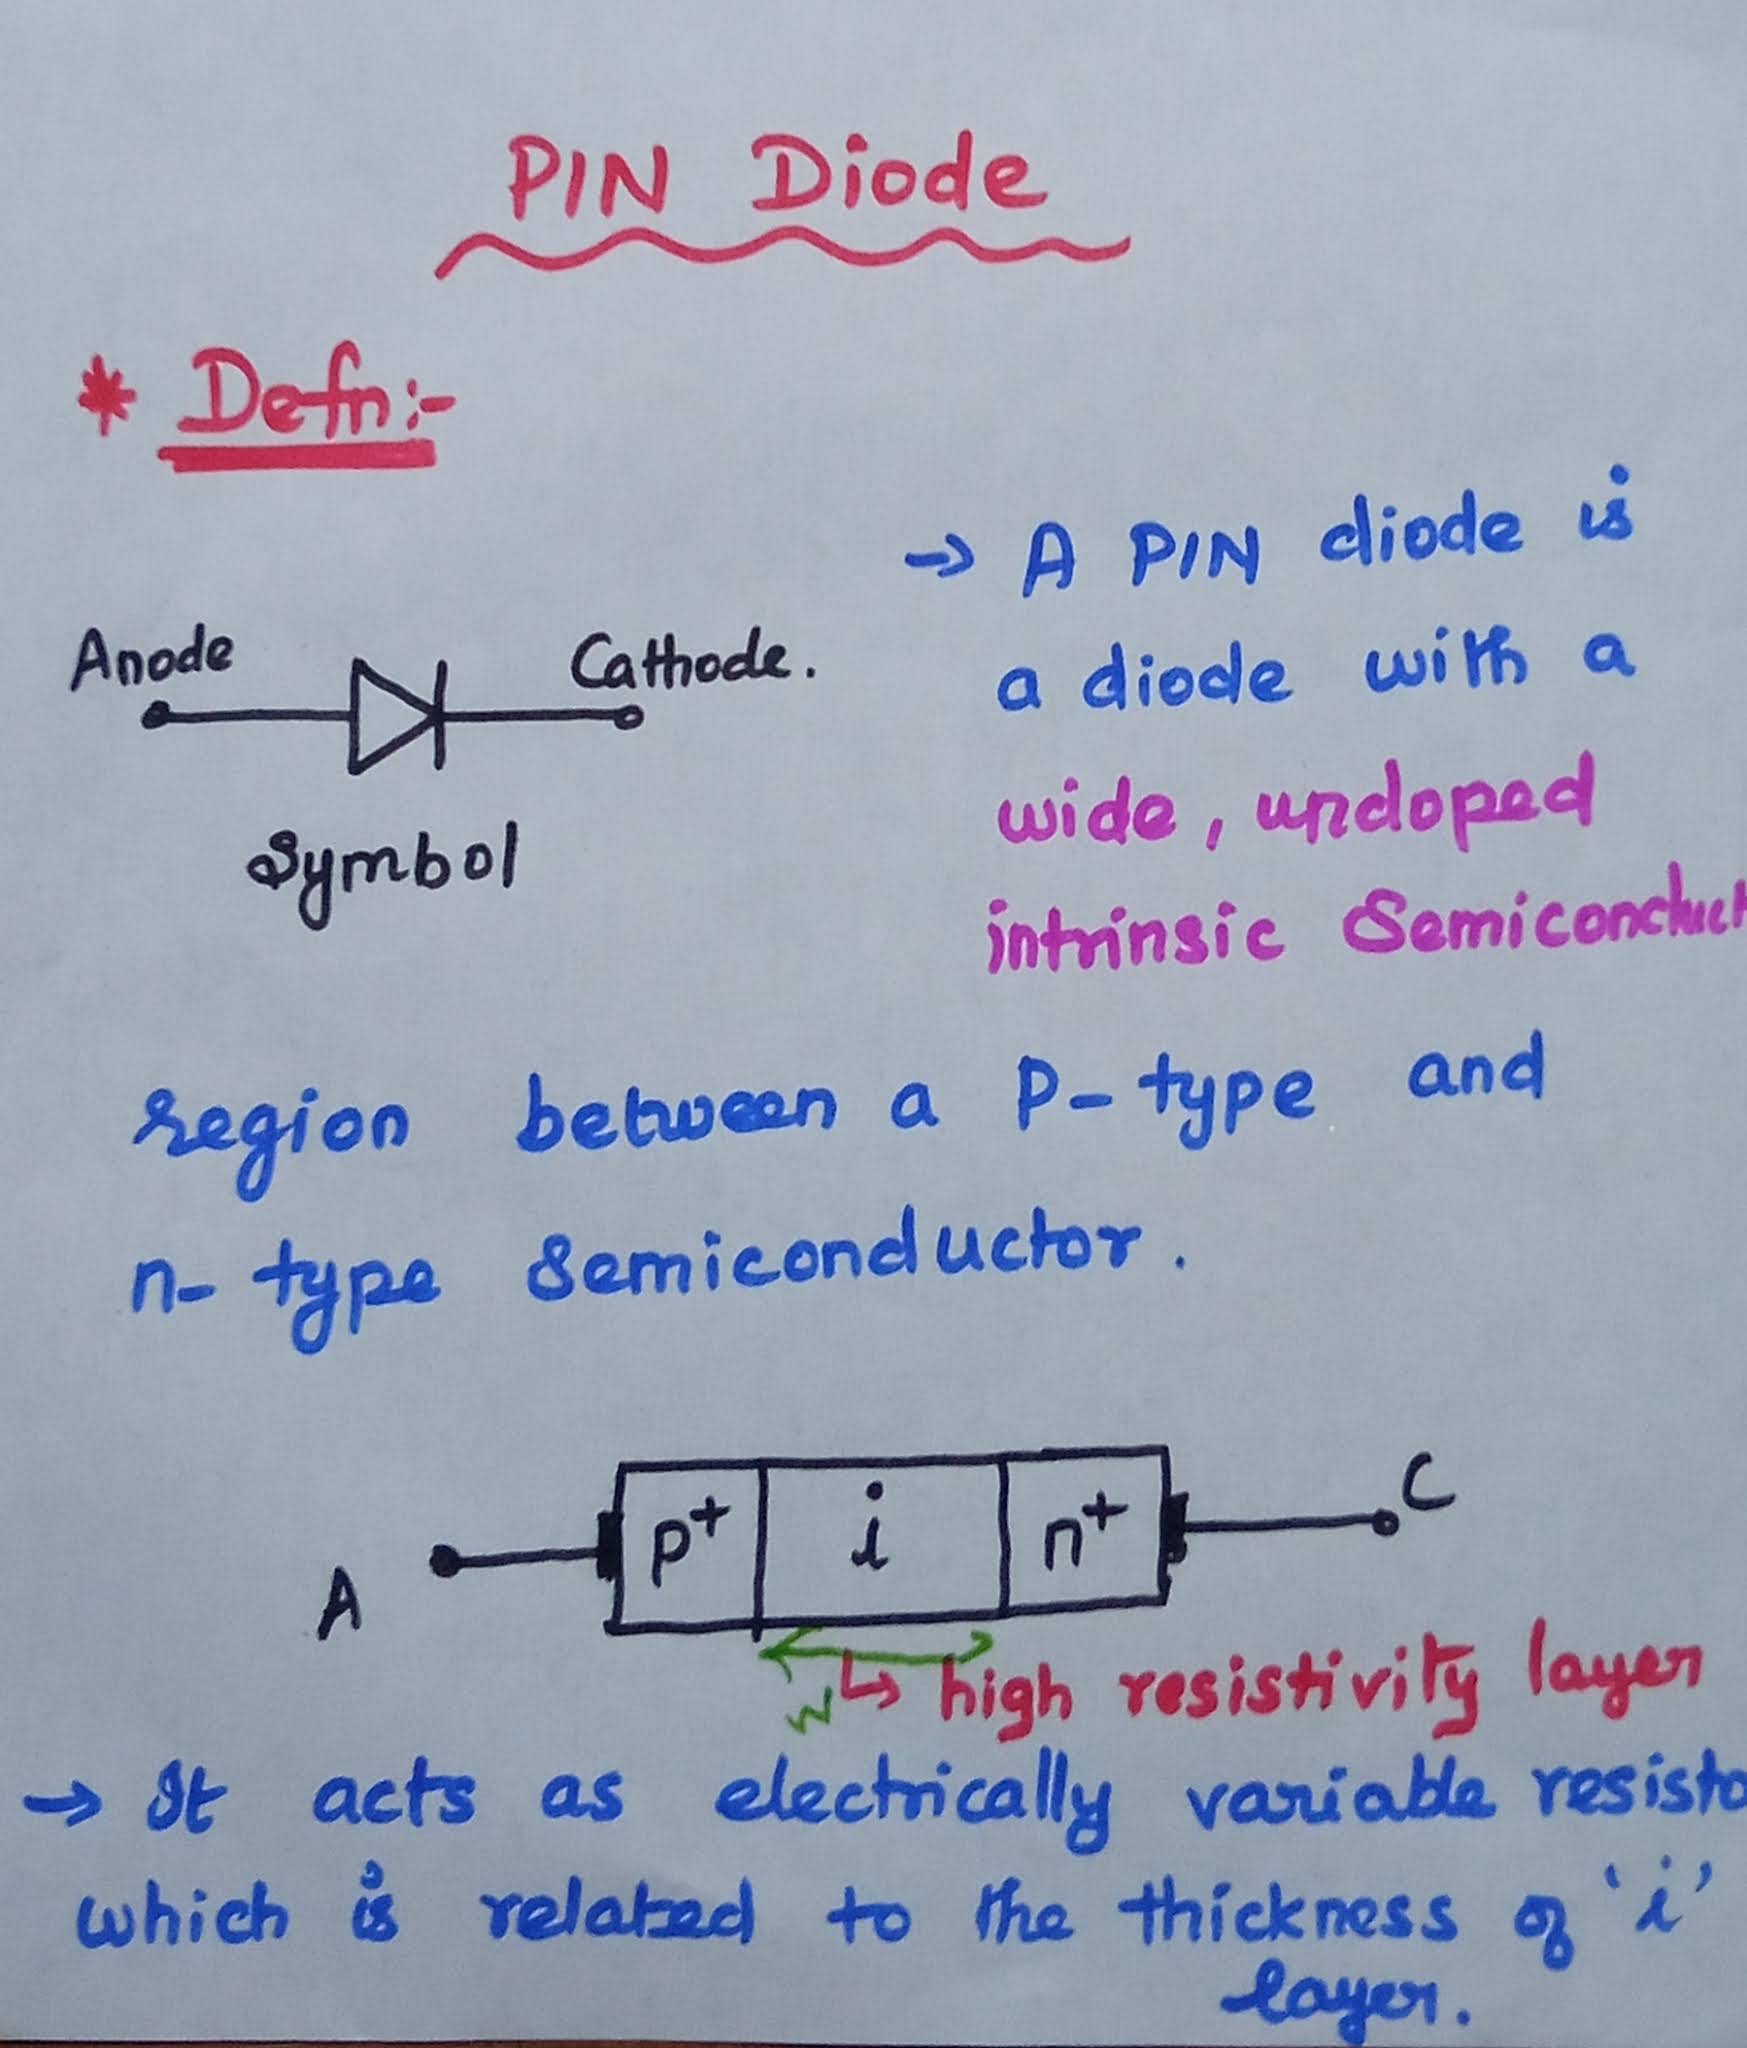 PIN Diode
* Defn:-
→ A PIN diode is
Anode Cathode.
a diode with a
Symbol
wide, undoped
intrinsic Semiconduct
region between a P-type and
n-type Semiconductor.
A p+ i n+ C
W ↳ high resistivity layer
→ It acts as electrically variable resisto
which is related to the thickness of 'i'
layer.